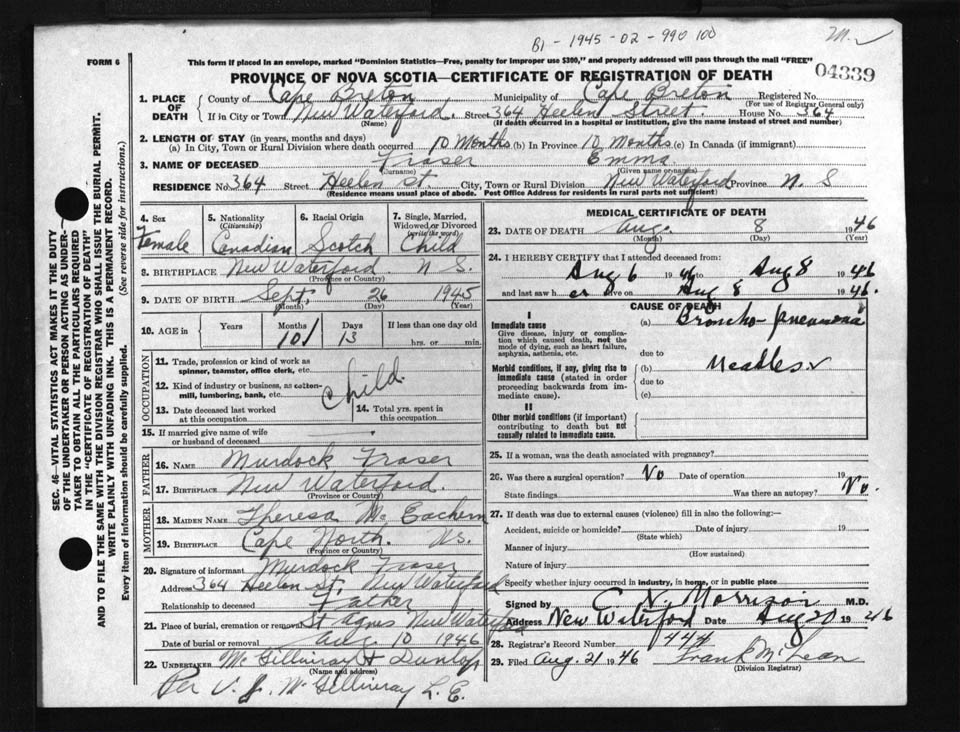 B1 - 1945 - 02 - 990 100
FORM 6
This form if placed in an envelope, marked "Dominion Statistics—Free, penalty for improper use $300," and properly addressed will pass through the mail "FREE"
PROVINCE OF NOVA SCOTIA—CERTIFICATE OF REGISTRATION OF DEATH
04339
SEC. 46—VITAL STATISTICS ACT MAKES IT THE DUTY
OF THE UNDERTAKER OR PERSON ACTING AS UNDER-
TAKER TO OBTAIN ALL THE PARTICULARS REQUIRED
IN THE "CERTIFICATE OF REGISTRATION OF DEATH"
AND TO FILE THE SAME WITH THE DIVISION REGISTRAR WHO SHALL ISSUE THE BURIAL PERMIT.
WRITE PLAINLY WITH UNFADING INK. THIS IS A PERMANENT RECORD.
Every item of information should be carefully supplied. (See reverse side for instructions.)
1. PLACE OF DEATH
County of Cape Breton Municipality of Cape Breton Registered No.
(For use of Registrar General only)
If in City or Town New Waterford, Street 364 Heelen Street. House No. 364
(Name) (If death occurred in a hospital or institution, give the name instead of street and number)
2. LENGTH OF STAY (in years, months and days)
(a) In City, Town or Rural Division where death occurred 10 Months (b) In Province 10 Months (c) In Canada (if immigrant)
3. NAME OF DECEASED Fraser Emma
(Surname) (Given name or names)
RESIDENCE No. 364 Street Heelen St. City, Town or Rural Division New Waterford Province N. S
(Residence means usual place of abode. Post Office Address for residents in rural parts not sufficient)
4. Sex
Female
5. Nationality
(Citizenship)
Canadian
6. Racial Origin
Scotch
7. Single, Married,
Widowed or Divorced
(write the word)
Child
8. BIRTHPLACE New Waterford N S.
(Province or Country)
9. DATE OF BIRTH Sept. 26 1945
(Month) (Day) (Year)
10. AGE in Years Months Days If less than one day old
10 13 hrs. or min.
OCCUPATION
11. Trade, profession or kind of work as
spinner, teamster, office clerk, etc.
12. Kind of industry or business, as cotton-
mill, lumbering, bank, etc.
Child
13. Date deceased last worked
at this occupation
14. Total yrs. spent in
this occupation
15. If married give name of wife
or husband of deceased
FATHER
16. NAME Murdock Fraser
17. BIRTHPLACE New Waterford.
(Province or Country)
MOTHER
18. MAIDEN NAME Theresa Mc Eachern
19. BIRTHPLACE Cape North. NS.
(Province or Country)
20. Signature of informant Murdock Fraser
Address 364 Heelen St, New Waterford
Relationship to deceased Father
21. Place of burial, cremation or removal St Agnes New Waterford
Date of burial or removal Aug. 10 1946
22. UNDERTAKER McGillivray & Dunlop
(Name and address)
Per V. J. McGillivray L. E.
MEDICAL CERTIFICATE OF DEATH
23. DATE OF DEATH Aug. 8 1946
(Month) (Day) (Year)
24. I HEREBY CERTIFY that I attended deceased from:
Aug 6 1946 to Aug 8 1946
and last saw her alive on Aug 8 1946.
CAUSE OF DEATH
I
Immediate cause
Give disease, injury or complica-
tion which caused death, not the
mode of dying, such as heart failure,
asphyxia, asthenia, etc.
(a) Broncho-pneumonia
due to
Morbid conditions, if any, giving rise to
immediate cause (stated in order
proceeding backwards from im-
mediate cause).
(b) Measles
due to
(c)
II
Other morbid conditions (if important)
contributing to death but not
causally related to immediate cause.
25. If a woman, was the death associated with pregnancy?
26. Was there a surgical operation? No Date of operation 19
State findings Was there an autopsy? No.
27. If death was due to external causes (violence) fill in also the following:—
Accident, suicide or homicide? Date of injury 19
(State which)
Manner of injury
(How sustained)
Nature of injury
Specify whether injury occurred in industry, in home, or in public place
Signed by C. N. Morrison M.D.
Address New Waterford Date Aug 20 1946
28. Registrar's Record Number 444
29. Filed Aug. 21 1946 Frank McLean
(Division Registrar)